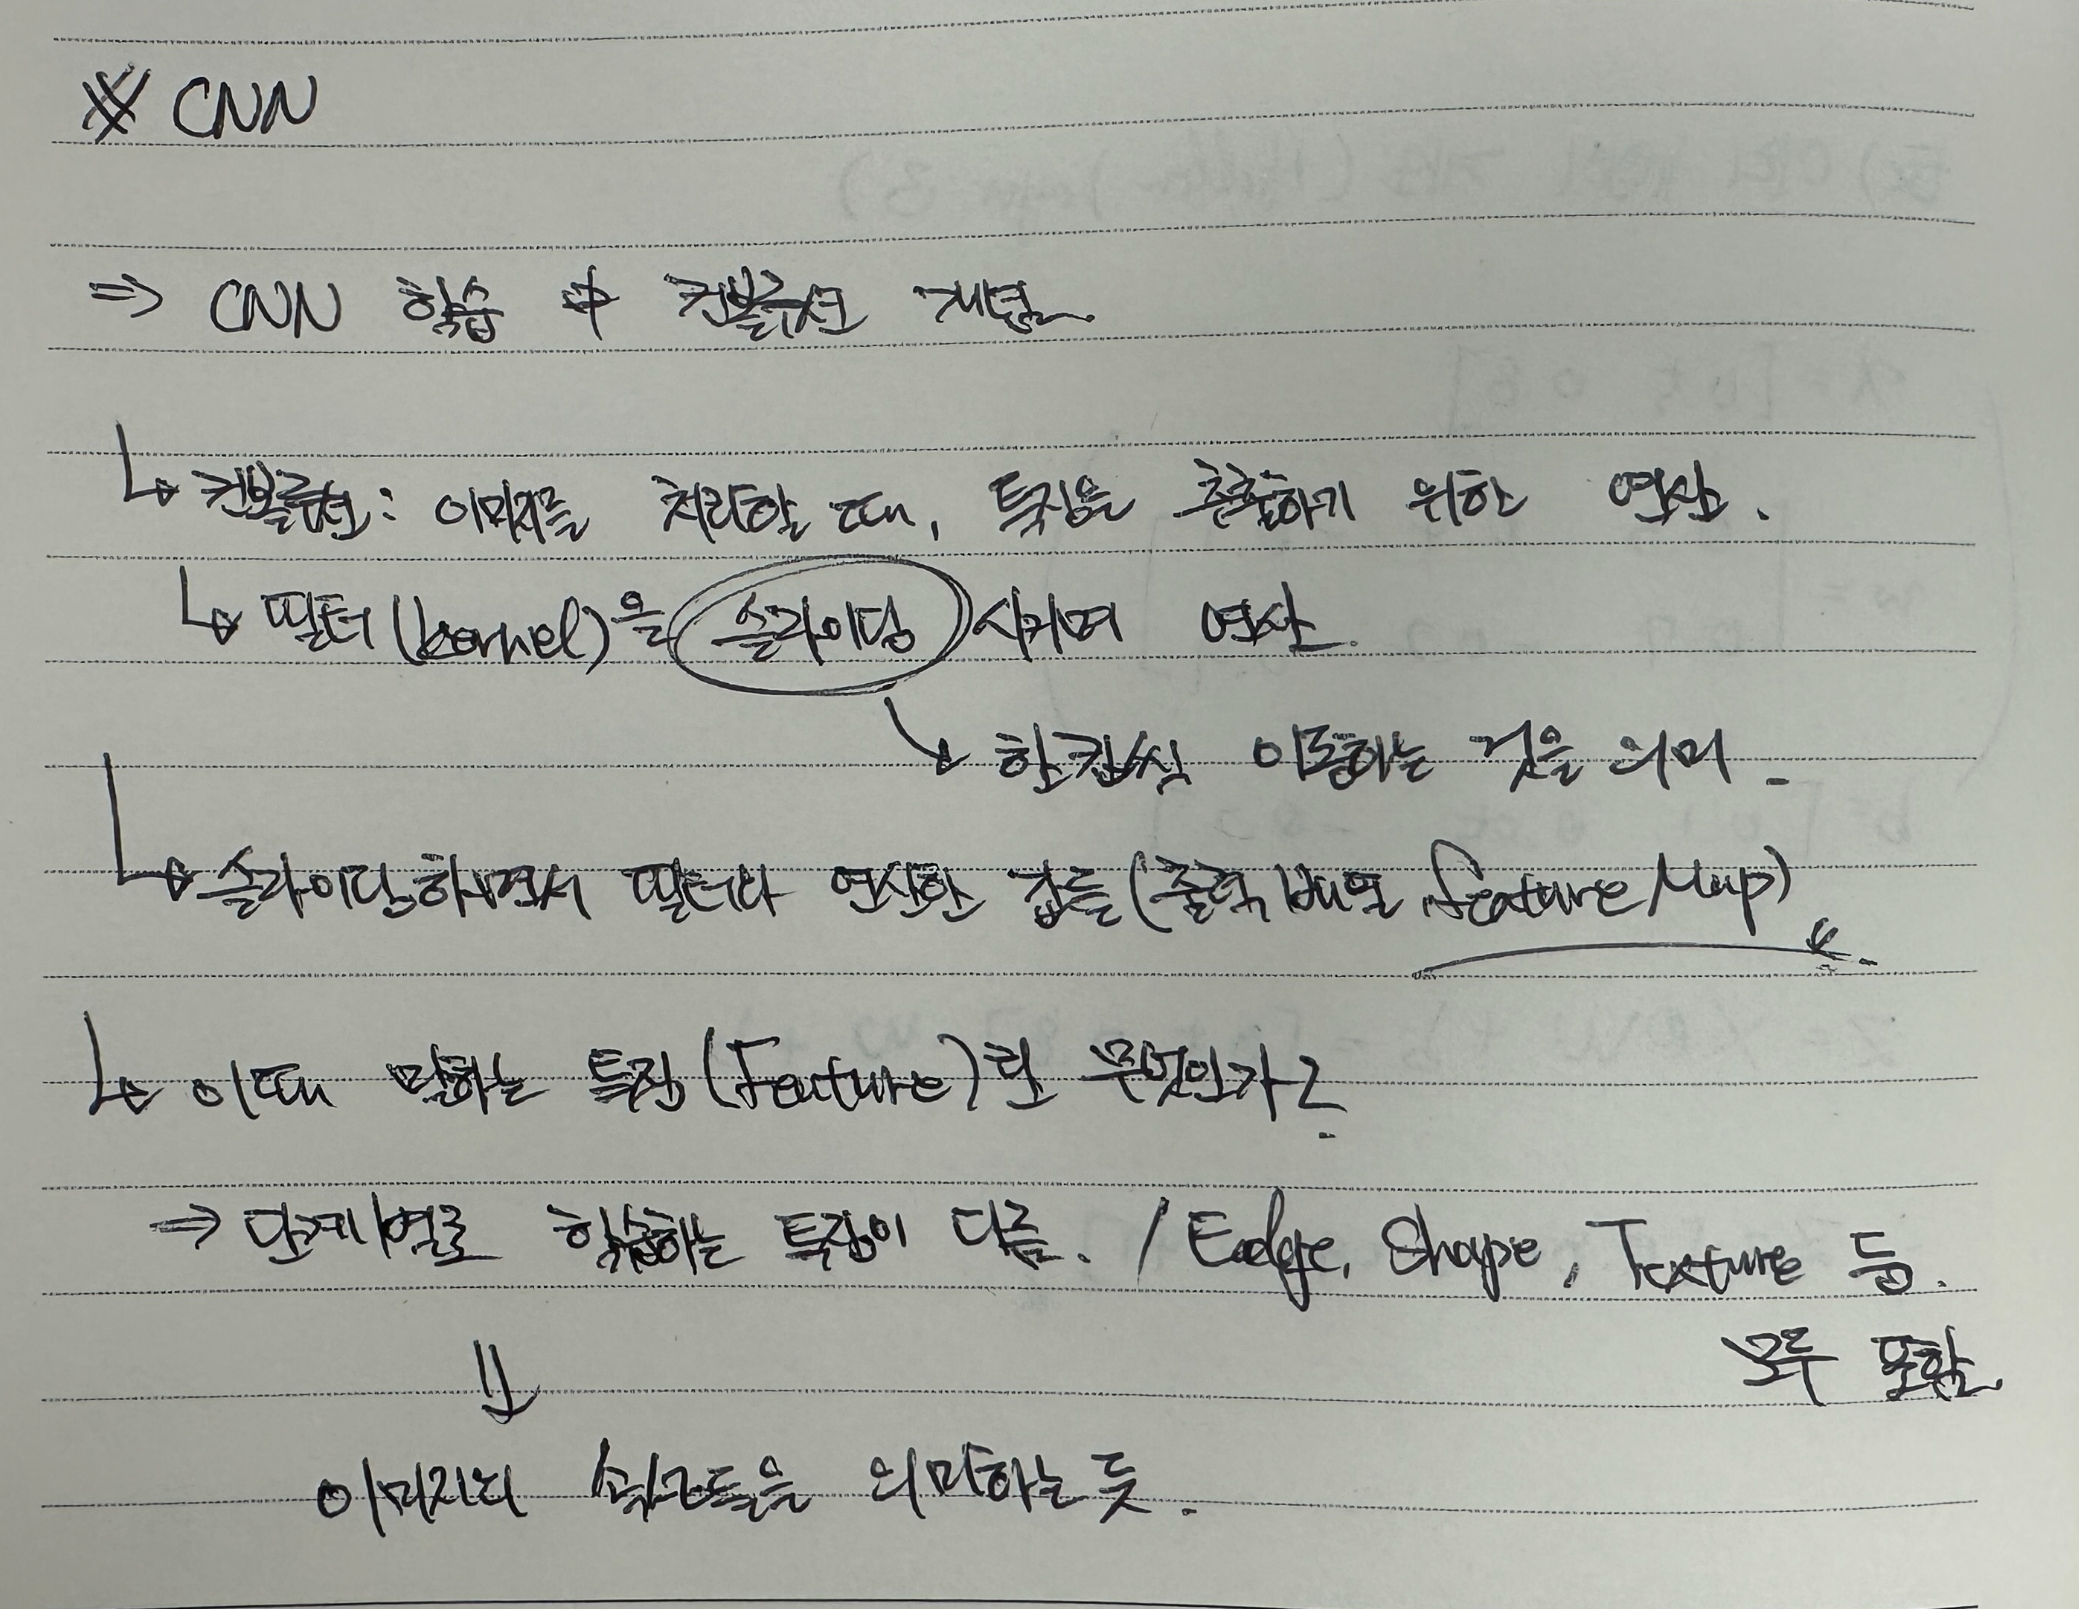 ※ CNN
⇒ CNN 학습 中 컨볼루션 개념.
↳ 컨볼루션: 이미지를 처리할 때, 특징을 추출하기 위한 연산.
↳ 필터(kernel)을 슬라이딩 시키며 연산.
↘ 한칸씩 이동하는 것을 의미.
↳ 슬라이딩하면서 필터와 연산한 값들(출력, 배열, feature Map).
↳ 이때 말하는 특징(Feature)란 무엇인가?
⇒ 단계별로 학습하는 특징이 다름. / Edge, Shape, Texture 등.
모두 포함.
⇓
이미지의 요소들을 의미하는 듯.